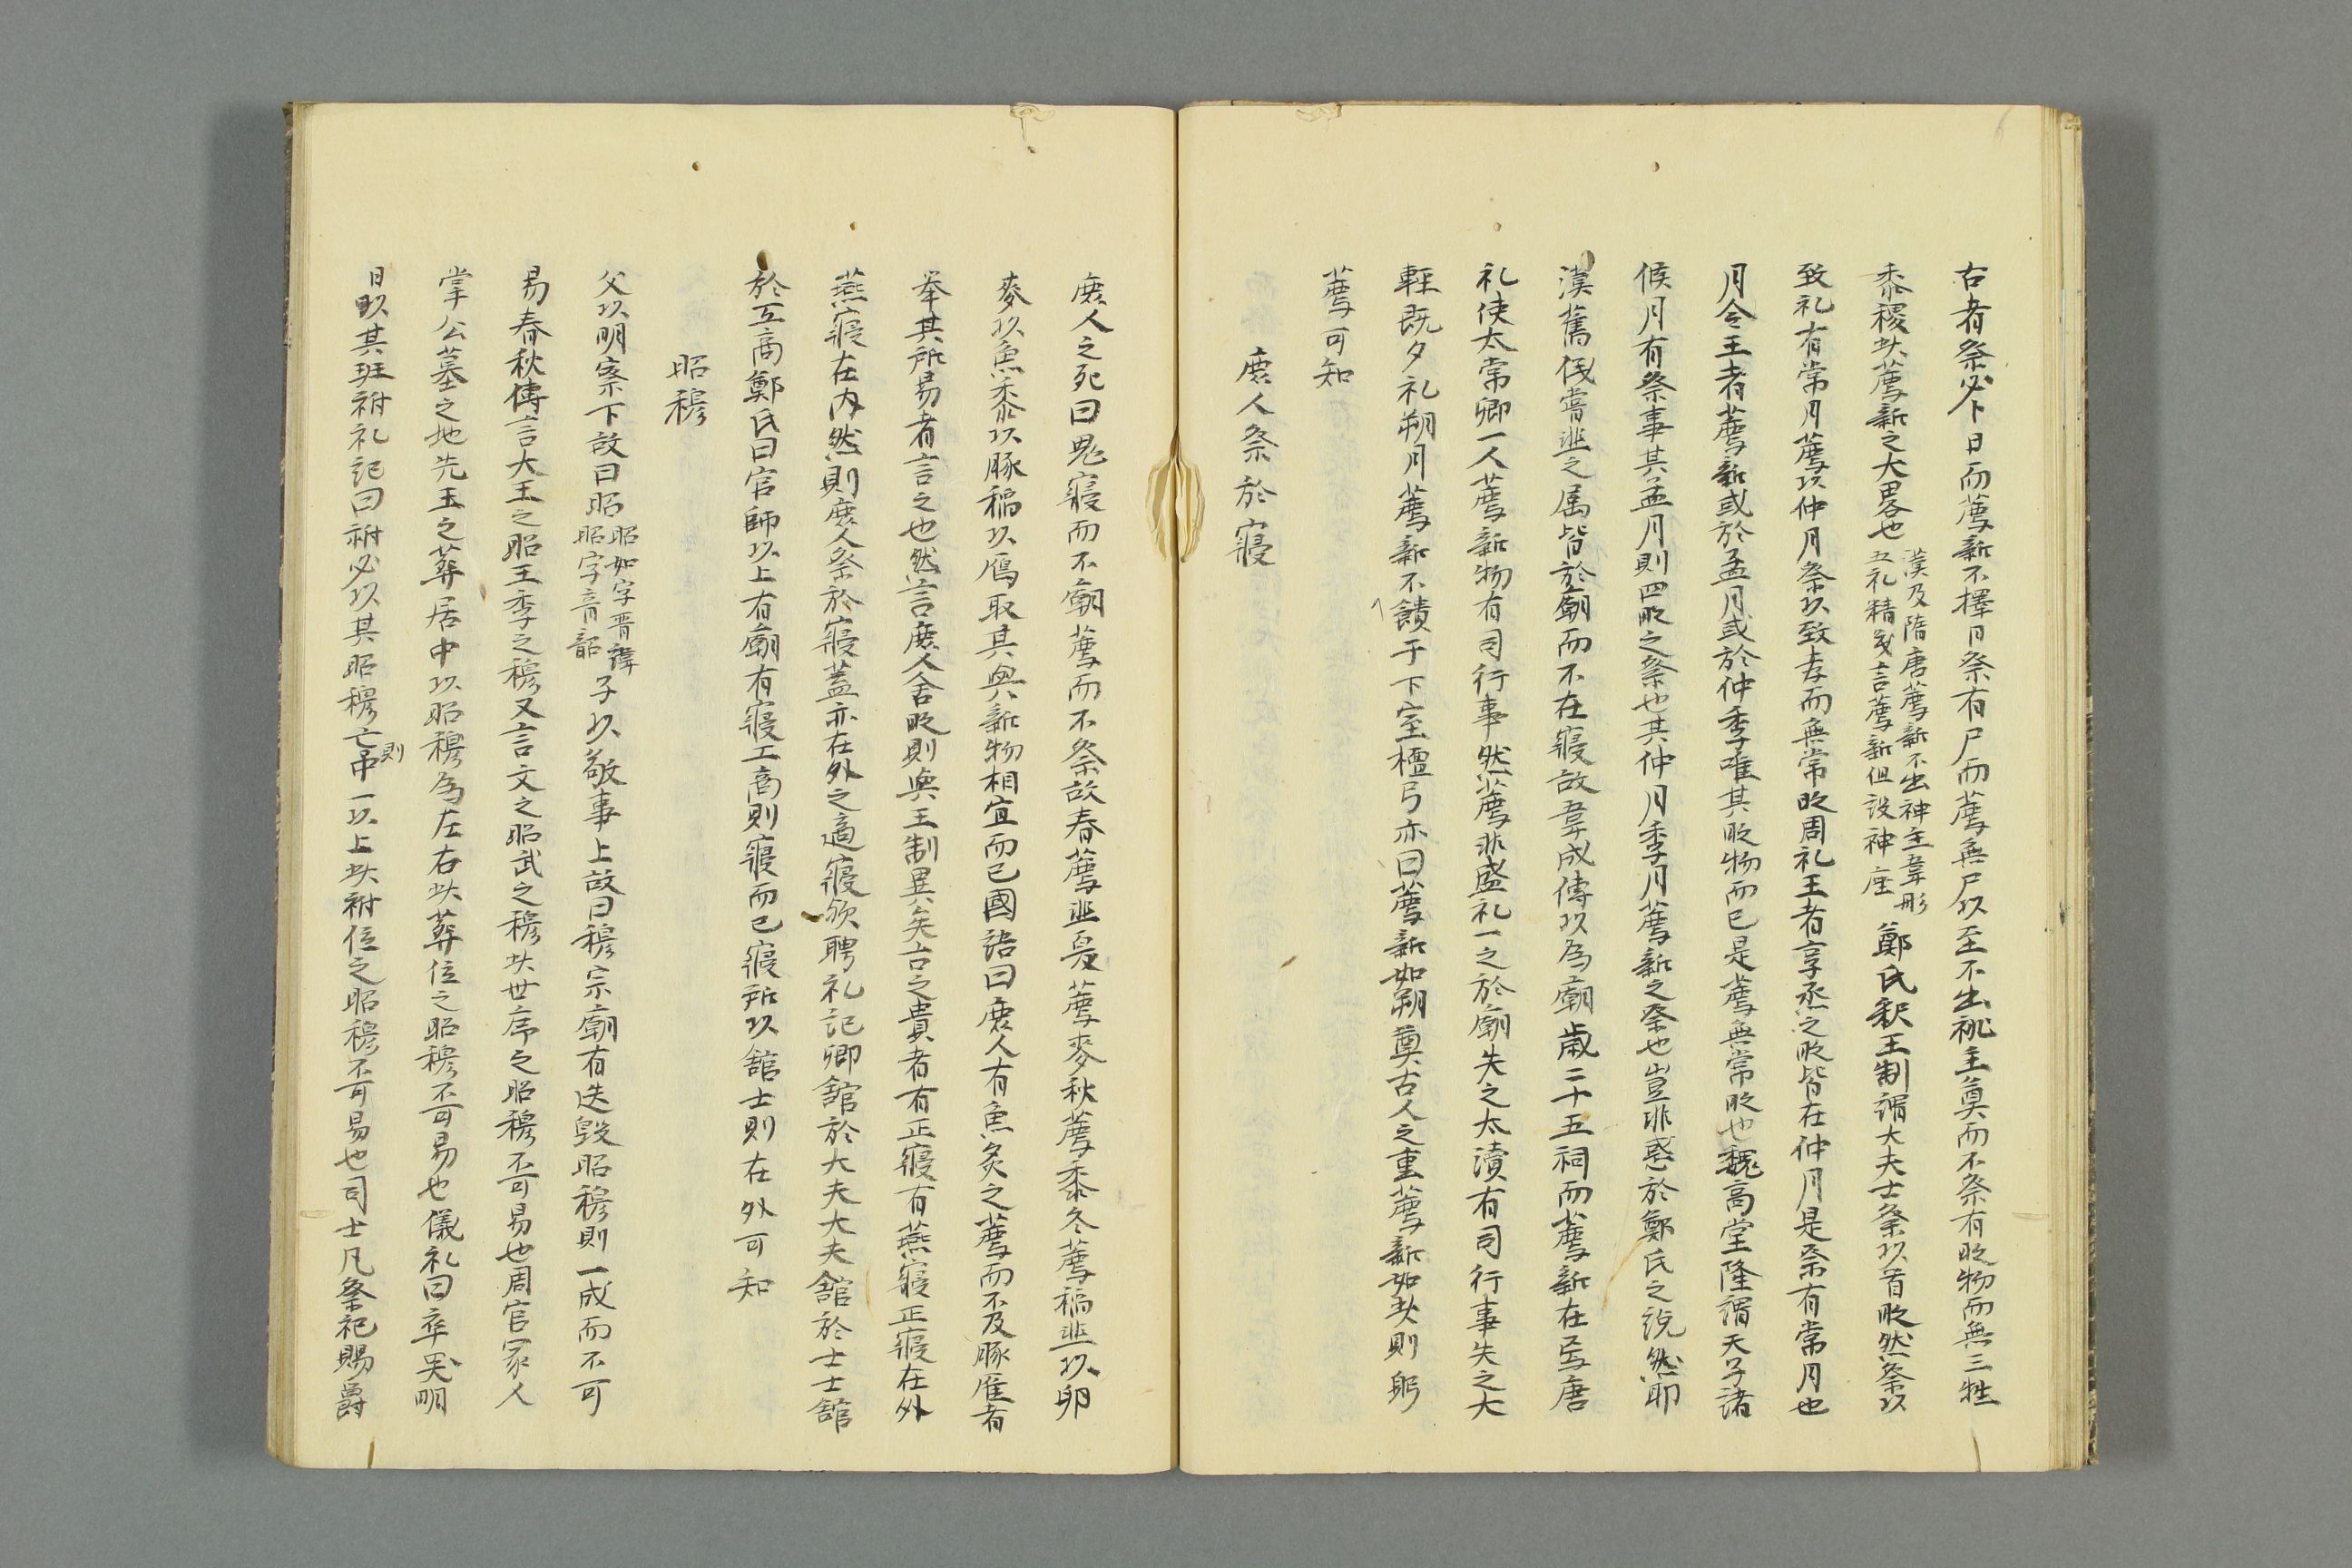 古者祭必卜日而薦新不擇日祭有尸而薦無尸以至不出祧主奠而不祭有時物而無三牲
黍稷此薦新之大畧也
漢及隋唐薦新不出神主韋彤
五礼精義言薦新但設神座
鄭氏釈王制謂大夫士祭以首時然祭以
致礼有常月薦以仲月祭以致孝而無常時周礼王者享烝之時皆在仲月是祭有常月也
月令王者薦新或於孟月或於仲季唯其時物而已是薦無常時也魏高堂隆謂天子諸
候月有祭事其孟月則四時之祭也其仲月季月薦新之祭也豈非惑於鄭氏之説然耶
漢舊儀嘗韭之属皆於廟而不在寢故韋成傳以為廟歳二十五祠而薦新在焉唐
礼使太常卿一人薦新物有司行事然薦非盛礼一之於廟失之太瀆有司行事失之大
輕既夕礼朔月薦新不饋于下室檀弓亦曰薦新如朔奠古人之重薦新如此則躬
薦可知
庶人祭於寢
庶人之死曰鬼寢而不廟薦而不祭故春薦韭夏薦麥秋薦黍冬薦稲韭以卵
麥以魚黍以豚稲以鴈取其與新物相宜而已國語曰庶人有魚炙之薦而不及豚雁者
举其所易者言之也然言庶人舍時則與王制異矣言之貴者有正寢有燕寢正寢在外
燕寢在内然則庶人祭於寢蓋亦在外之適寢欤聘礼記卿舘於大夫大夫舘於士士舘
於工商鄭氏曰官師以上有廟有寢工商則寢而已寢所以舘士則在外可知
昭穆
父以明察下故曰昭
昭如字晋諱
昭字音韶
子以敬事上故曰穆宗廟有迭毀昭穆則一成而不可
易春秋傳言大王之昭王季之穆又言文之昭武之穆此世序之昭穆不可易也周官冢人
掌公墓之地先王之葬居中以昭穆為左右此葬位之昭穆不可易也儀礼曰卒哭明
日以其班祔礼記曰祔必以其昭穆亡則中一以上此祔位之昭穆不可易也司士凡祭祀賜爵